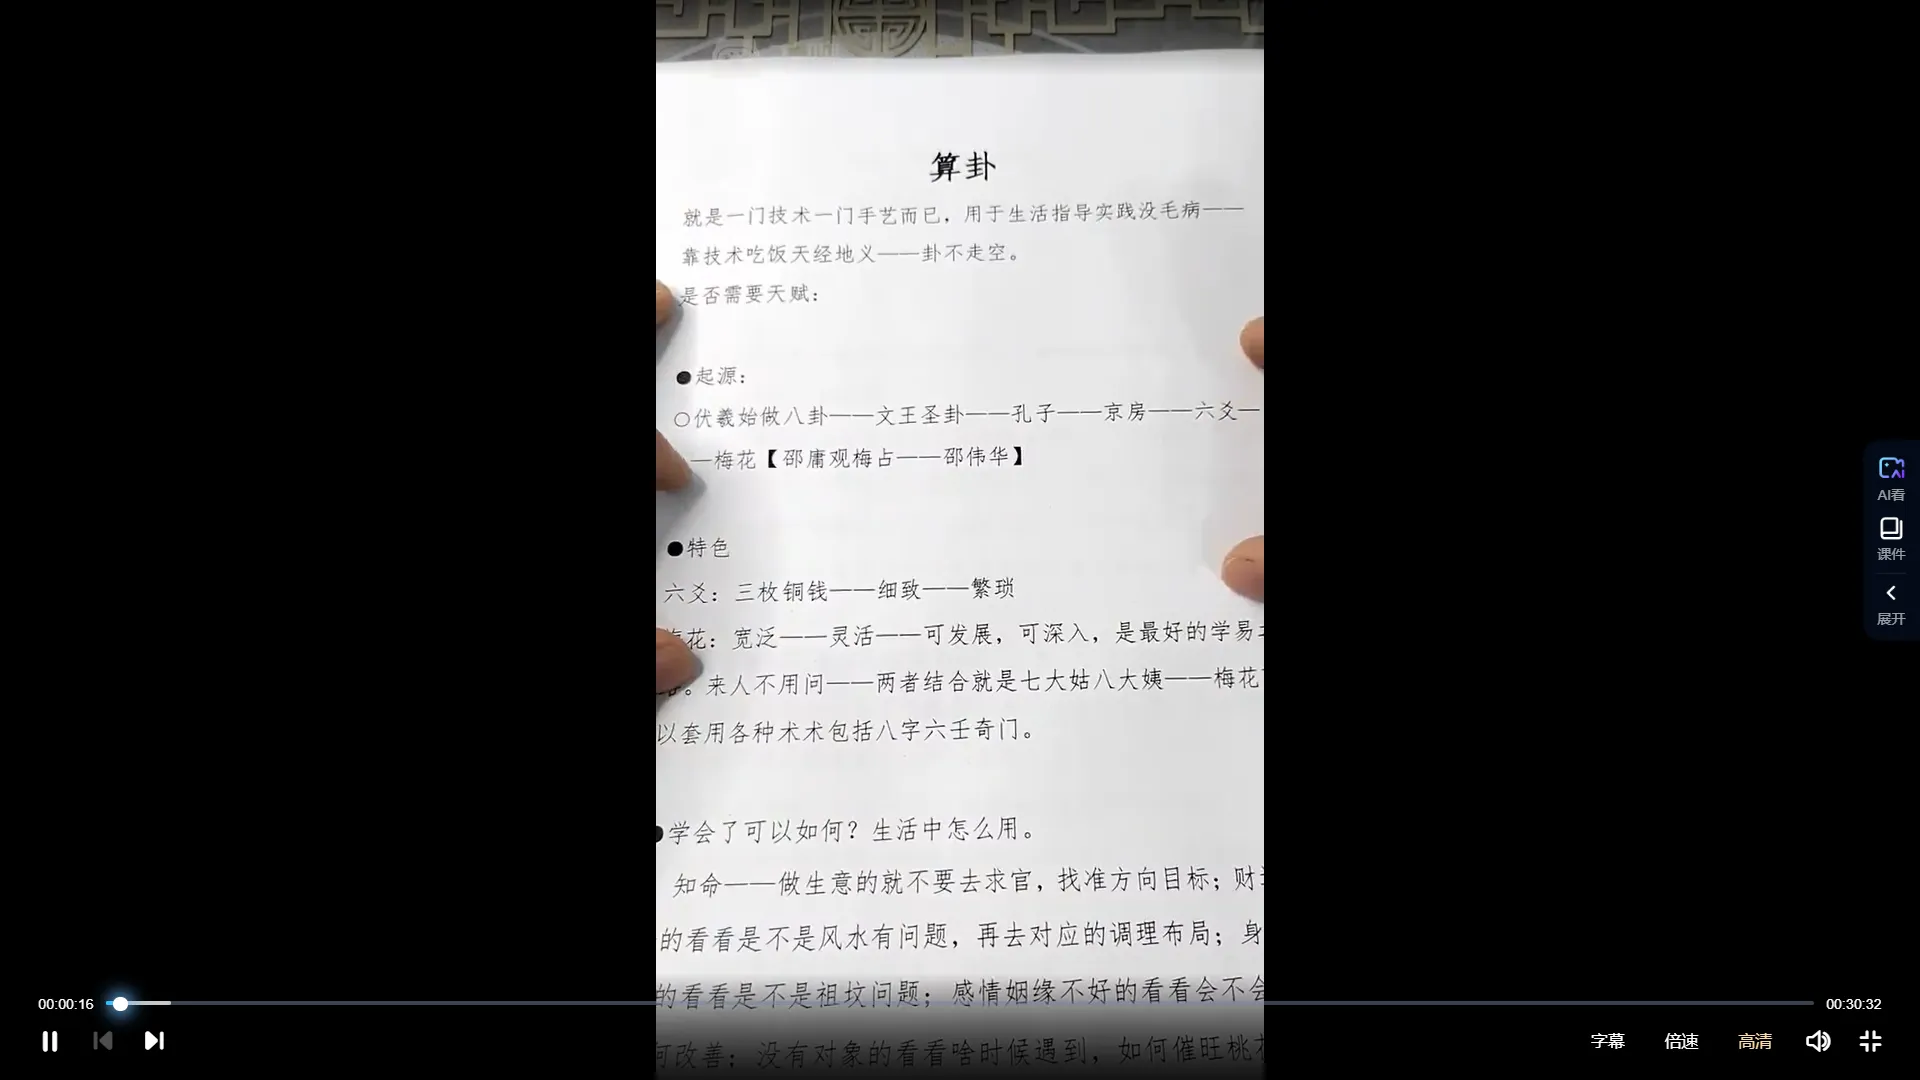 算卦
就是一门技术一门手艺而已，用于生活指导实践没毛病——
靠技术吃饭天经地义——卦不走空。
是否需要天赋：
●起源：
○伏羲始做八卦——文王圣卦——孔子——京房——六爻—
—梅花【邵庸观梅占——邵伟华】
●特色
六爻：三枚铜钱——细致——繁琐
花：宽泛——灵活——可发展，可深入，是最好的学易
。来人不用问——两者结合就是七大姑八大姨——梅花
以套用各种术术包括八字六壬奇门。
●学会了可以如何？生活中怎么用。
知命——做生意的就不要去求官，找准方向目标；财
的看看是不是风水有问题，再去对应的调理布局；身
的看看是不是祖坟问题；感情姻缘不好的看看会不会
何改善；没有对象的看看啥时候遇到，如何催旺桃花
AI看
课件
展开
00:00:16
00:30:32
字幕
倍速
高清